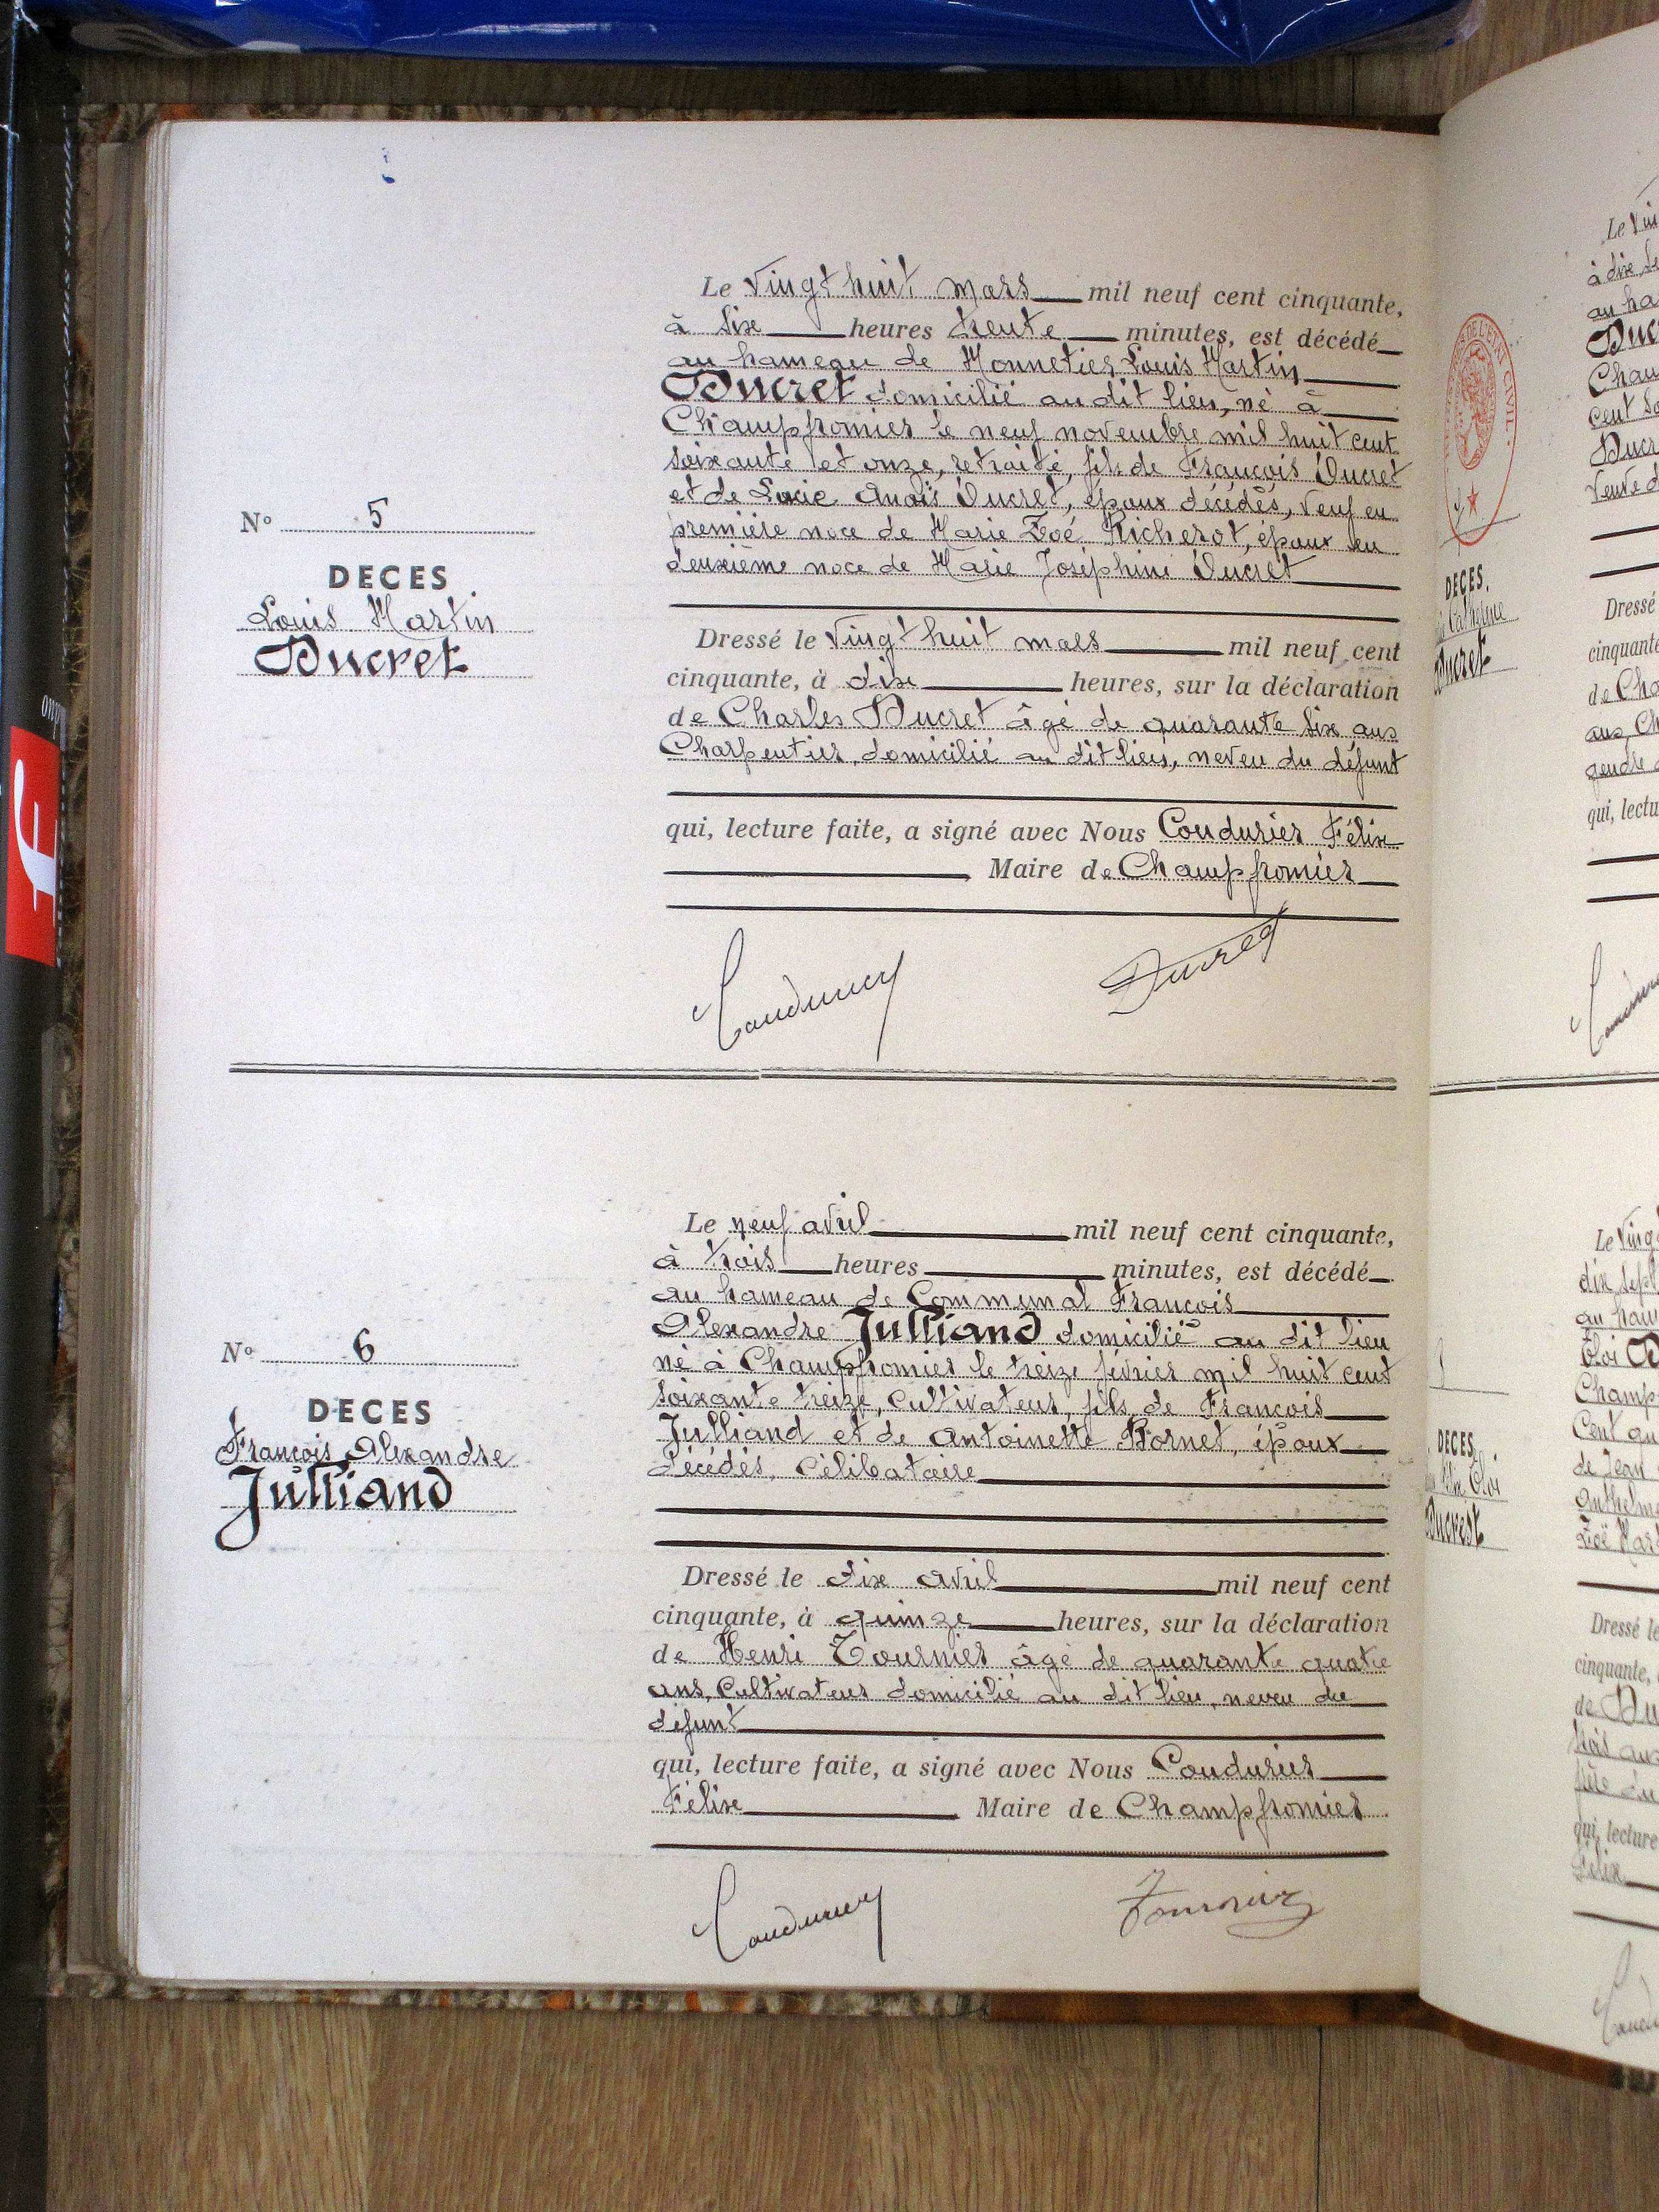 Le vingt huit mars mil neuf cent cinquante,
à six heures trente minutes, est décédé
au hameau de Monnetier Louis Martin
Ducret domicilié au dit lieu, né à
Champfromier le neuf novembre mil huit cent
soixante et onze, retraité, fils de François Ducret
et de Lucie Anaïs Ducret, époux décédés, veuf en
première noce de Marie Zoé Richerot, époux en
deuxième noce de Marie Joséphine Ducret
N° 5
DECES
Louis Martin
Ducret
Dressé le vingt huit mars mil neuf cent
cinquante, à dix heures, sur la déclaration
de Charles Ducret âgé de quarante six ans
Charpentier, domicilié au dit lieu, neveu du défunt
qui, lecture faite, a signé avec Nous Coudurier Félix
Maire de Champfromier
Coudurier
Ducret
Le neuf avril mil neuf cent cinquante,
à trois heures minutes, est décédé
au hameau de Communal François
Alexandre Julliand domicilié au dit lieu
né à Champfromier le treize février mil huit cent
soixante treize, cultivateur, fils de François
Julliand et de Antoinette Bornet, époux
décédés. Célibataire
N° 6
DECES
François Alexandre
Julliand
Dressé le dix avril mil neuf cent
cinquante, à quinze heures, sur la déclaration
de Henri Tournier âgé de quarante quatre
ans, Cultivateur domicilié au dit lieu, neveu du
défunt
qui, lecture faite, a signé avec Nous Coudurier
Félix Maire de Champfromier
Coudurier
Tournier
DECES.
Catherine
Ducret
Dressé
cinquante
qui, lectu
DECES.
Ducrest
Dressé le
cinquante,
qui, lecture
Félix